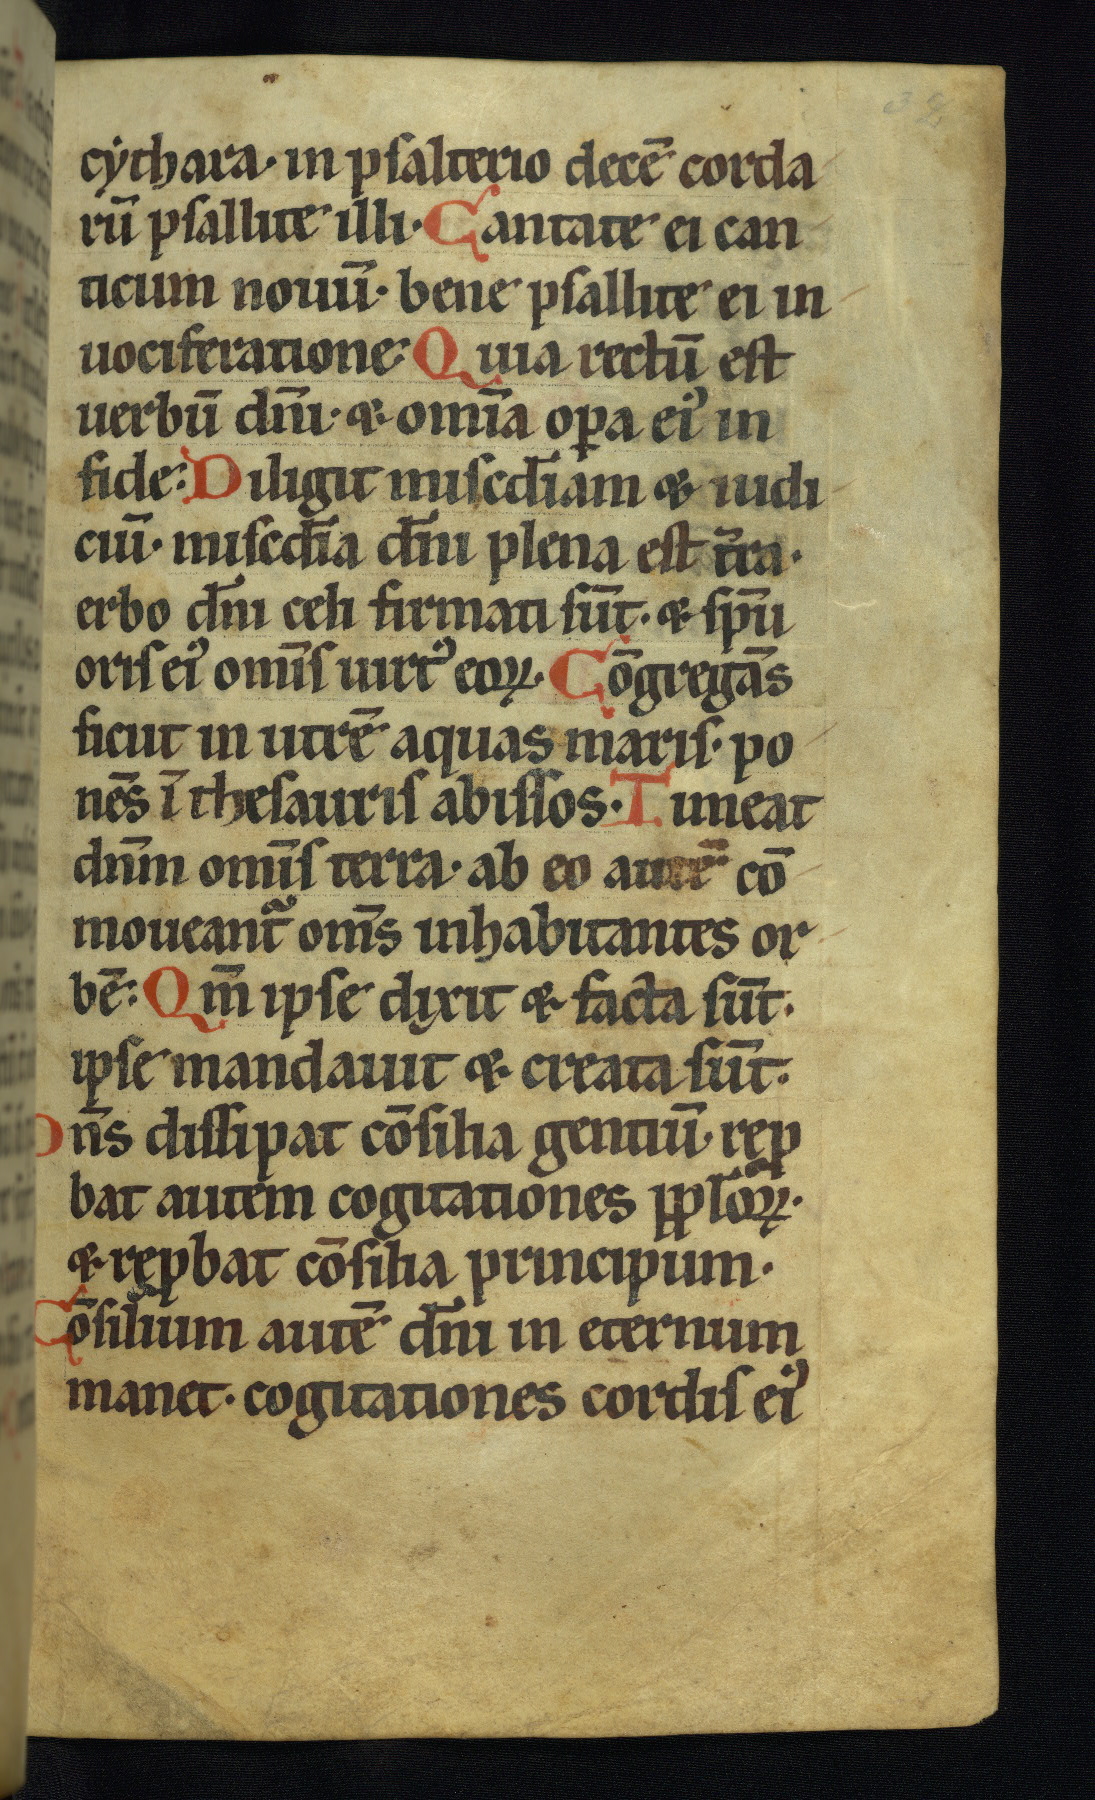 cẏthara· in psalterio decē corda
rū psallite illi· Cantate ei can
ticum nouū· bene psallite ei in
uociferatione· Quia rectū est
uerbū dn̄i· ⁊ om̄ia oꝑa ei᾿ in
fide· Diligit misc̄diam ⁊ iudi
ciū· misc̄dia dn̄i plena est t̄ra·
erbo dn̄i celi firmati sūt· ⁊ sp̄u
oris ei᾿ om̄is uirt᾿ eoꝝ· Cōgregās
sicut in utrē aquas maris· po
nēs ī thesauris abissos· Timeat
dn̄m om̄is terra· ab eo autē cō
moueant᷑ om̄s inhabitantes or
bē· Qm̄ ipse dixit ⁊ facta sūt·
ipse mandauit ⁊ creata sūt·
Dn̄s dissipat cōsilia gentiū· reꝓ
bat autem cogitationes pp̄loꝝ·
⁊ reꝓbat cōsilia principum·
Cōsilium autē dn̄i in eternum
manet· cogitationes cordis ei᾿